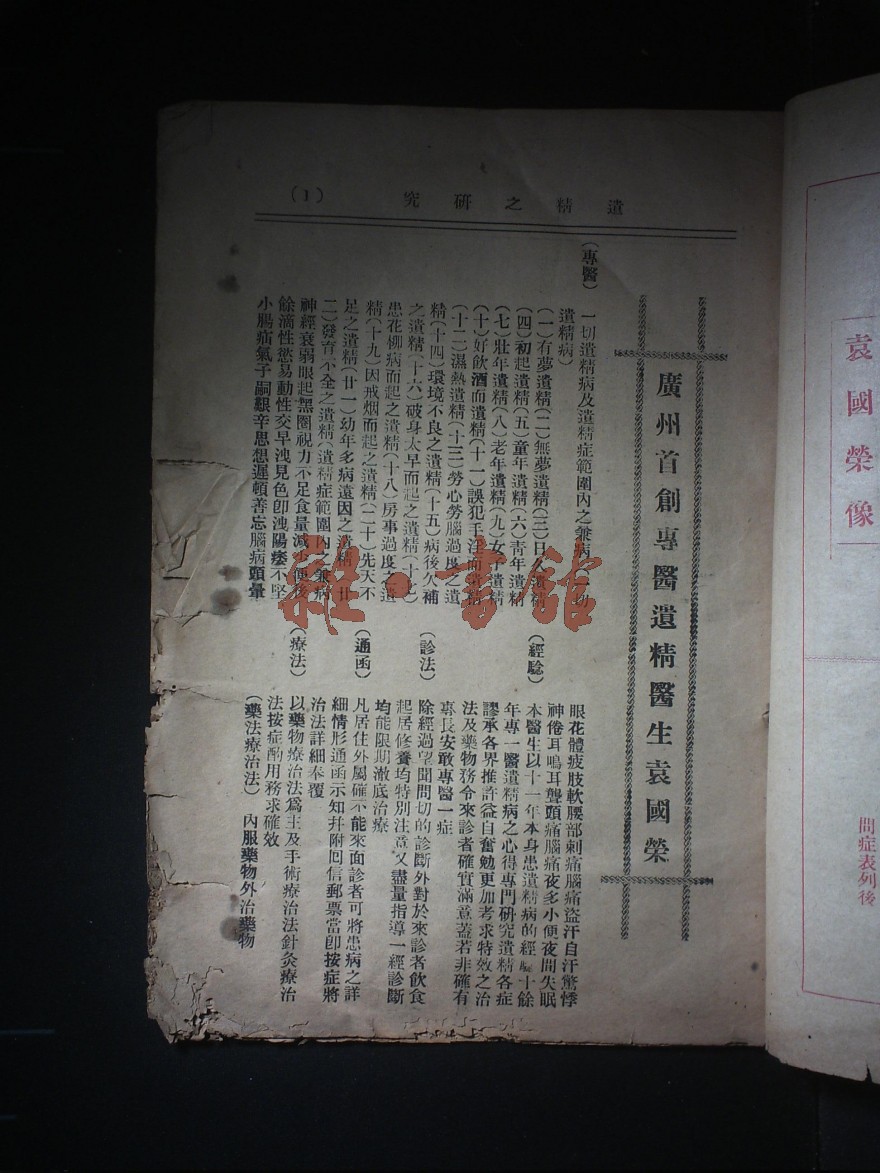 遺精之研究 (1)
廣州首創專醫遺精醫生袁國榮
(專醫) 一切遺精病及遺精症範圍內之兼病(一切
遺精病)
(一)有夢遺精(二)無夢遺精(三)日久遺精
(四)初起遺精(五)童年遺精(六)青年遺精
(七)壯年遺精(八)老年遺精(九)女子遺精
(十)好飲酒而遺精(十一)誤犯手淫而遺精
(十二)濕熱遺精(十三)勞心勞腦過度之遺
精(十四)環境不良之遺精(十五)病後欠補
之遺精(十六)破身太早而起之遺精(十七)
患花柳病而起之遺精(十八)房事過度之遺
精(十九)因戒烟而起之遺精(二十)先天不
足之遺精(廿一)幼年多病遠因之遺精(廿
二)發育不全之遺精(遺精症範圍內之兼病)
神經衰弱眼起黑圈視力不足食量減少便後
餘滴性慾易動性交早洩見色卽洩陽痿不堅
小腸疝氣子嗣艱辛思想遲頓善忘腦病頭暈
眼花體疲肢軟腰部刺痛腦痛盜汗自汗驚悸
神倦耳鳴耳聾頭痛腦痛夜多小便夜間失眠
(經驗) 本醫生以十一年本身患遺精病的經驗十餘
年專一醫遺精病之心得專門研究遺精各症
謬承各界推許益自奮勉更加考求特效之治
法及藥物務令來診者確實滿意蓋若非確有
專長安敢專醫一症
(診法) 除經過望聞問切的診斷外對於來診者飲食
起居修養均特別注意又盡量指導一經診斷
均能限期澈底治療
(通函) 凡居住外屬確不能來面診者可將患病之詳
細情形通函示知并附回信郵票當卽按症將
治法詳細奉覆
(療法) 以藥物療治法爲主及手術療治法針灸療治
法按症酌用務求確效
(藥法療治法) 內服藥物外治藥物
袁國榮像
問症表列後
雜·書館